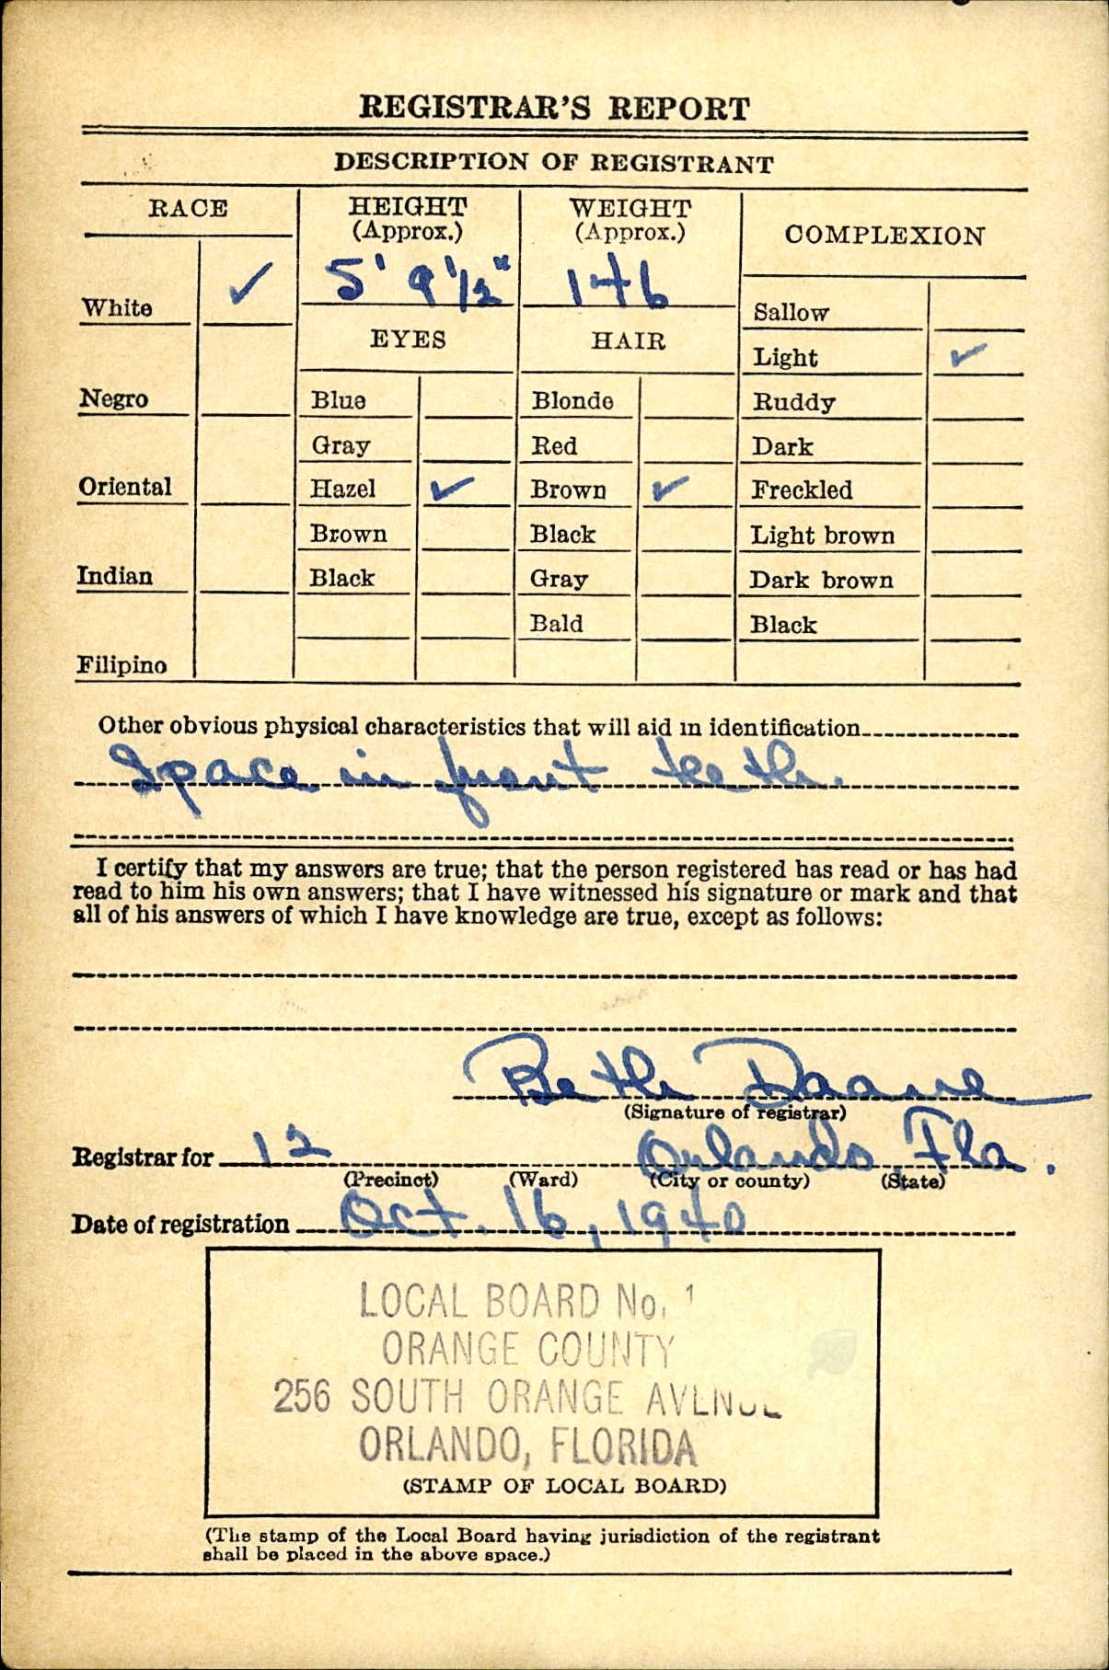 REGISTRAR'S REPORT
DESCRIPTION OF REGISTRANT
RACE
HEIGHT
(Approx.)
WEIGHT
(Approx.)
COMPLEXION
White ✓
5' 9 1/2"
146
Sallow
EYES
HAIR
Light ✓
Negro
Blue
Blonde
Ruddy
Gray
Red
Dark
Oriental
Hazel ✓
Brown ✓
Freckled
Brown
Black
Light brown
Indian
Black
Gray
Dark brown
Bald
Black
Filipino
Other obvious physical characteristics that will aid in identification
Space in front teeth.
I certify that my answers are true; that the person registered has read or has had
read to him his own answers; that I have witnessed his signature or mark and that
all of his answers of which I have knowledge are true, except as follows:
Beth Daane
(Signature of registrar)
Registrar for 12 Orlando Fla.
(Precinct) (Ward) (City or county) (State)
Date of registration Oct. 16, 1940
LOCAL BOARD No. 1
ORANGE COUNTY
256 SOUTH ORANGE AVENUE
ORLANDO, FLORIDA
(STAMP OF LOCAL BOARD)
(The stamp of the Local Board having jurisdiction of the registrant
shall be placed in the above space.)